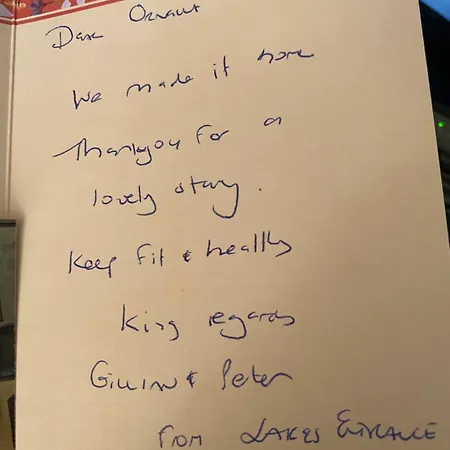 Dear
We made it home
Thankyou for a
lovely stay.
Keep fit & healthy
Kind regards
Gillian & Peter
From LAKES ENTRANCE